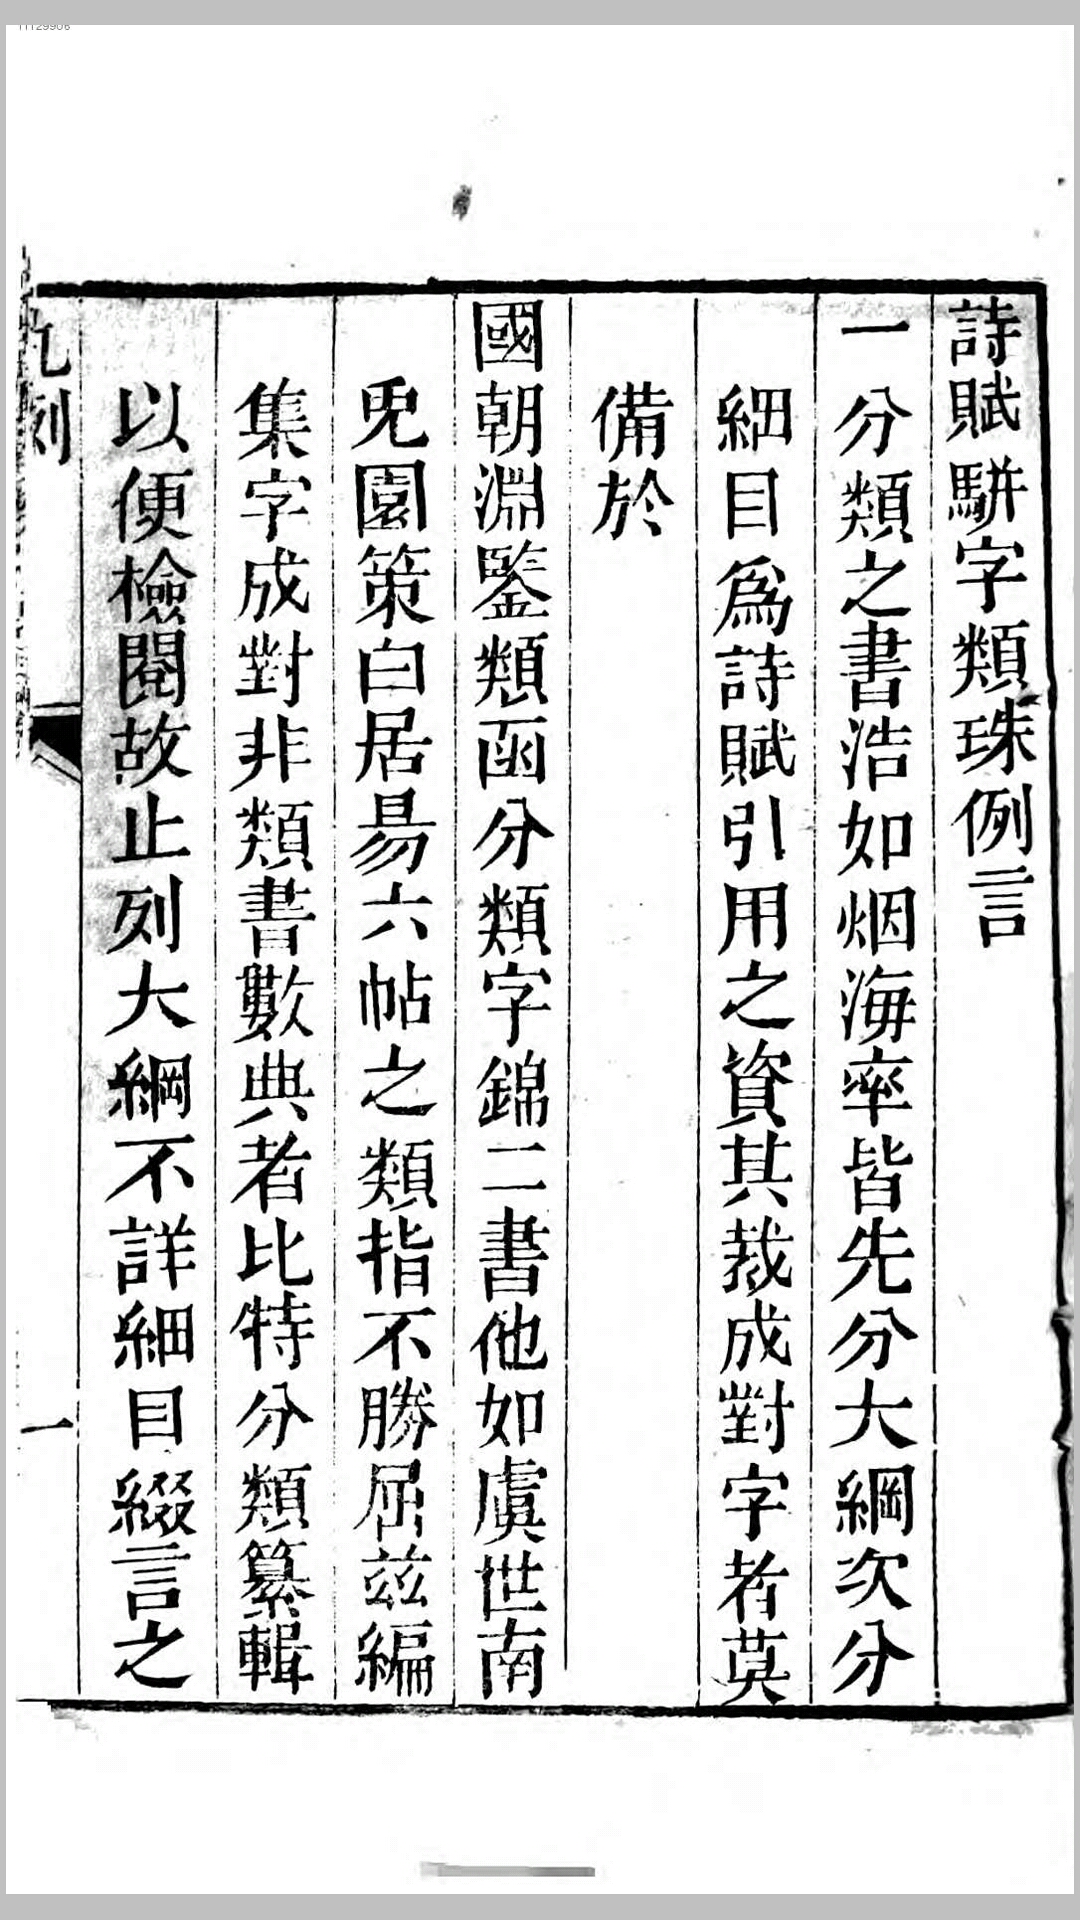 詩賦駢字類珠例言
一分類之書浩如烟海率皆先分大綱次分
細目爲詩賦引用之資其裁成對字者莫
備於
國朝淵鑒類函分類字錦二書他如虞世南
兎園策白居昜六帖之類指不勝屈兹編
集字成對非類書數典者比特分類纂輯
以便檢閱故止列大綱不詳細目綴言之
凡例
一